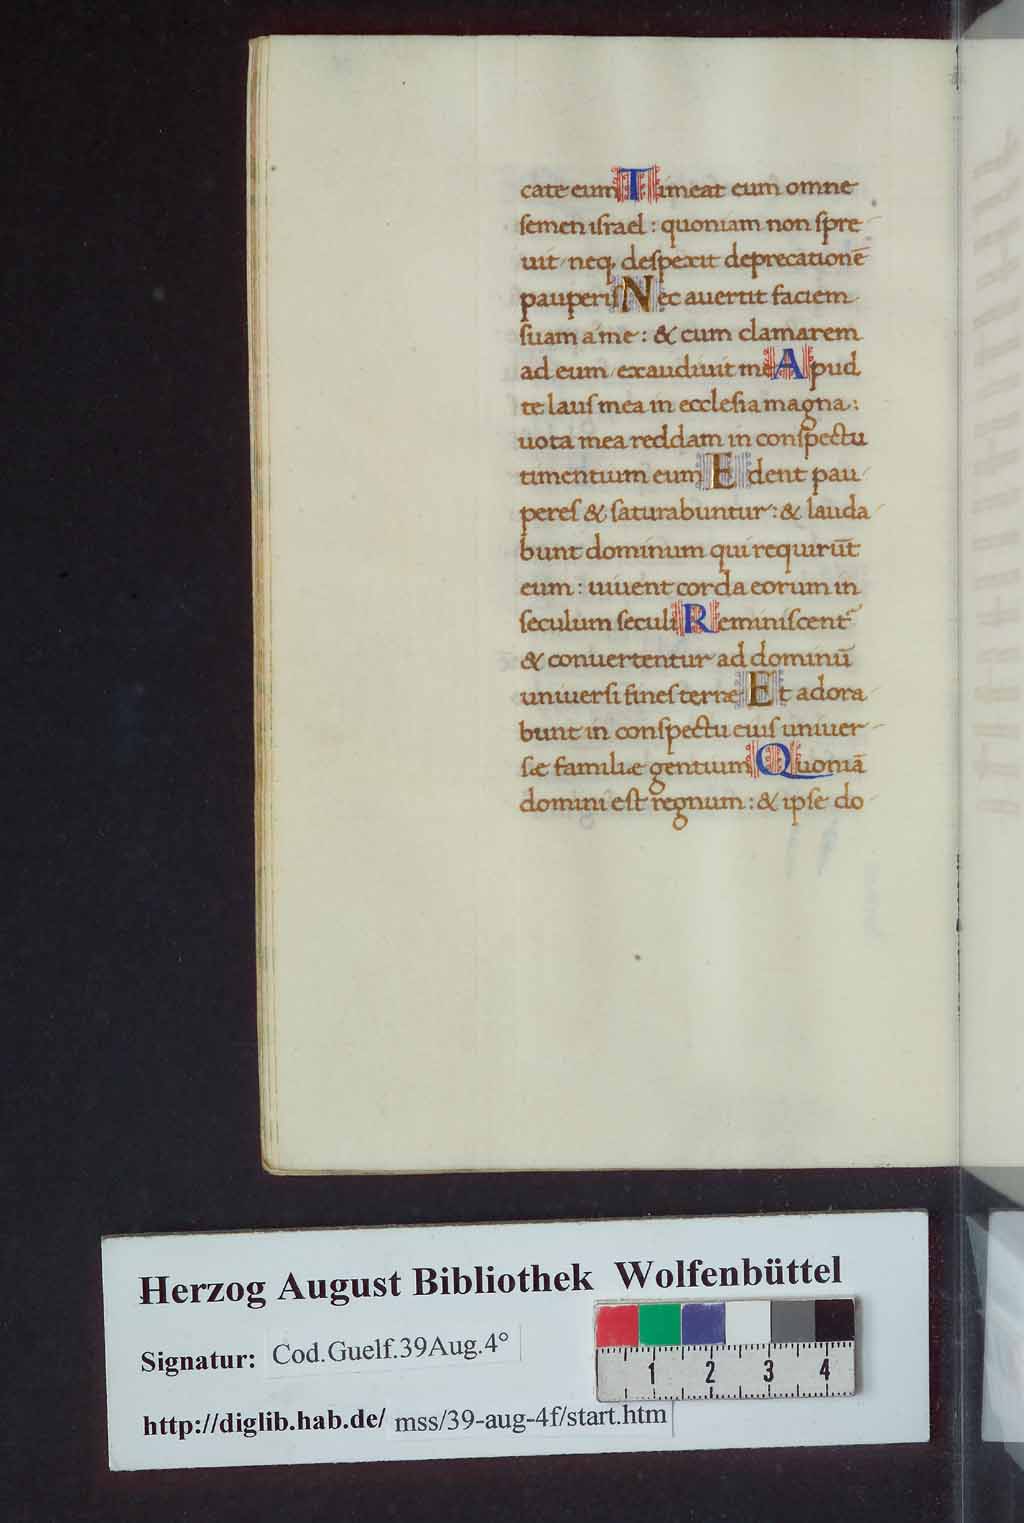 cate eum Timeat eum omne
semen israel : quoniam non spre
uit / neq, despexit deprecationē
pauperis Nec auertit faciem
suam a me : & cum clamarem
ad eum / exaudiuit me Apud
te laus mea in ecclesia magna :
uota mea reddam in conspectu
timentium eum Edent pau
peres & saturabuntur : & lauda
bunt dominum qui requirūt
eum : uiuent corda eorum in
seculum seculi Reminiscent᷑
& conuertentur ad dominū
uniuersi fines terræ Et adora
bunt in conspectu eius uniuer
sæ familiæ gentium Quoniā
domini est regnum : & ipse do
Herzog August Bibliothek Wolfenbüttel
Signatur: Cod.Guelf.39Aug.4°
http://diglib.hab.de/ mss/39-aug-4f/start.htm
1 2 3 4